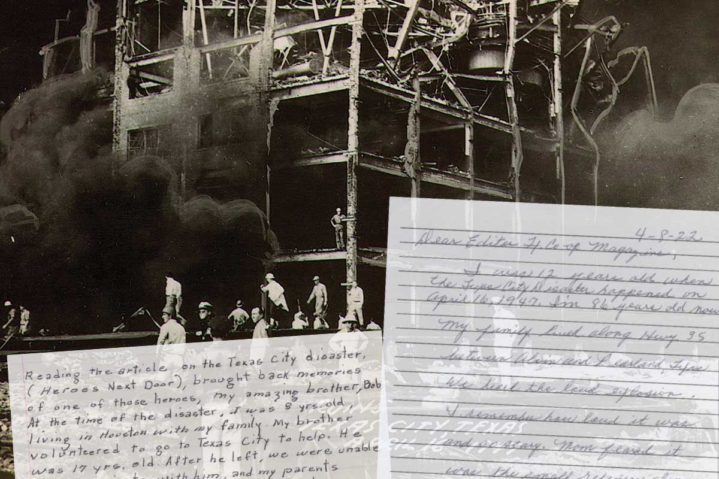 4-8-22
Dear Editor Tx Co-op Magazine,
I was 12 years old when
the Texas City Disaster happened on
April 16, 1947. I'm 86 years old now
My family lived along Hwy. 35
between Alvin and Pearland Texas
We heard the loud explosion.
I remember how loud it was
and so scary. Mom feared it
was the small
Reading the article on the Texas City disaster,
(Heroes Next Door), brought back memories
of one of those heroes, my amazing brother, Bob
At the time of the disaster, I was 8 yrs old
living in Houston with my family. My brother
volunteered to go to Texas City to help. He
was 17 yrs. old. After he left, we were unable
with him, and my parents
AS CITY TEXAS